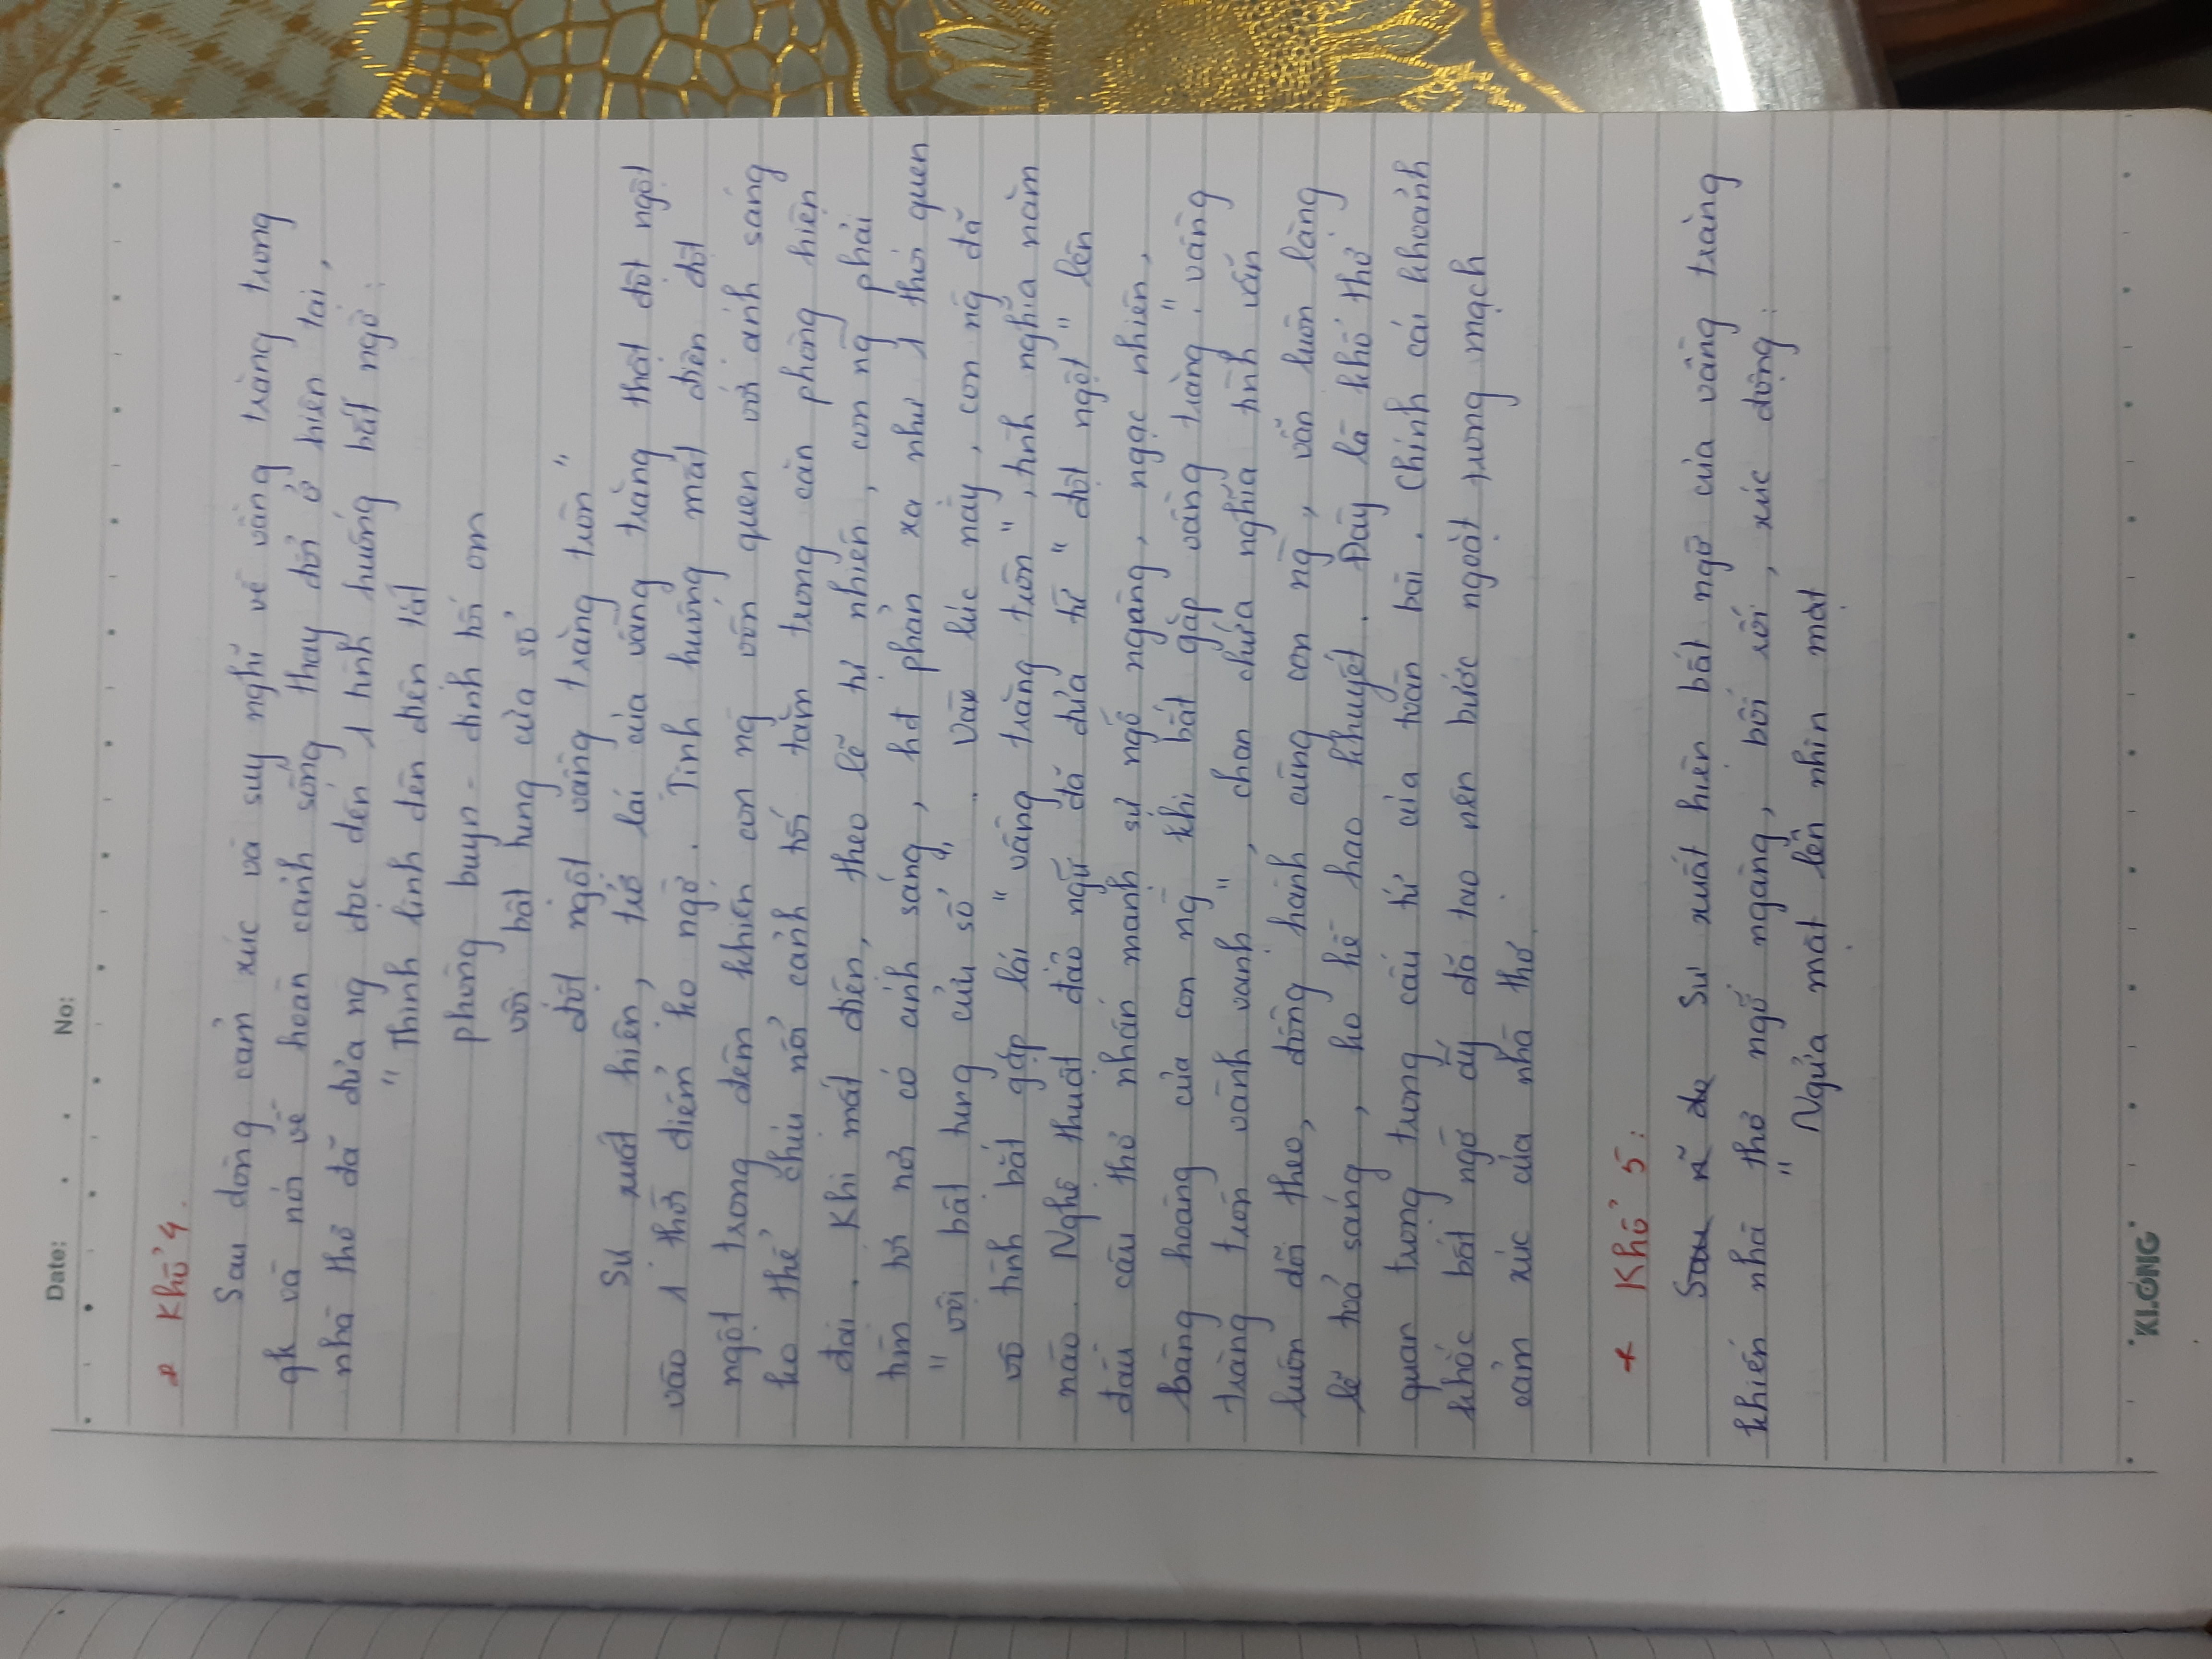 Date: . . No:
* Khổ 4.
Sau dòng cảm xúc và suy nghĩ về vầng trăng trong
qk và nói về hoàn cảnh sống thay đổi ở hiện tại,
nhà thơ đã đưa ng đọc đến 1 tình huống bất ngờ:
"Thình lình đèn điện tắt
phòng buyn - đinh tối om
vội bật tung cửa sổ
đột ngột vầng trăng tròn"
Sự xuất hiện, trở lại của vầng trăng thật đột ngột
vào 1 thời điểm ko ngờ. Tình huống mất điện đột
ngột trong đêm khiến con ng vốn quen với ánh sáng
ko thể chịu nổi cảnh tối tăm trong căn phòng hiện
đại. Khi mất điện, theo lẽ tự nhiên, con ng phải
tìm tới nơi có ánh sáng, hđ phản xạ như 1 thói quen
"vội bật tung cửa sổ". Vào lúc này, con ng đã
vô tình bắt gặp lại "vầng trăng tròn", tình nghĩa năm
nào. Nghệ thuật đảo ngữ đã đưa từ "đột ngột" lên
đầu câu thơ nhấn mạnh sự ngỡ ngàng, ngạc nhiên,
bàng hoàng của con ng khi bắt gặp vầng trăng. "vầng
trăng tròn vành vạnh", chan chứa nghĩa tình vẫn
luôn dõi theo, đồng hành cùng con ng, vẫn luôn lặng
lẽ toả sáng, ko hề hao khuyết. Đây là khổ thơ
quan trọng trong cấu tứ của toàn bài. Chính cái khoảnh
khắc bất ngờ ấy đã tạo nên bước ngoặt trong mạch
cảm xúc của nhà thơ.
* Khổ 5:
Sau Sự xuất hiện bất ngờ của vầng trăng
khiến nhà thơ ngỡ ngàng, bối rối, xúc động:
"Ngửa mặt lên nhìn mặt
KLONG